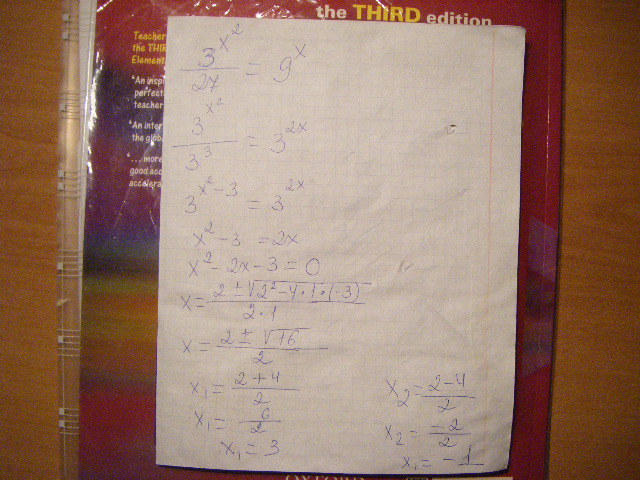 the THIRD edition
Teacher
the THIR
Element
"An insp
perfect
teacher
"An inter
the globa
"... more
good acc
accelera
3^x^2 / 27 = 9^x
3^x^2 / 3^3 = 3^2x
3^x^2-3 = 3^2x
x^2 - 3 = 2x
x^2 - 2x - 3 = 0
x = 2 ± √2^2-4·1·(-3) / 2·1
x = 2 ± √16 / 2
x₁ = 2+4 / 2
x₁ = 6 / 2
x₁ = 3
x₂ = 2-4 / 2
x₂ = -2 / 2
x₁ = -1
OXFORD